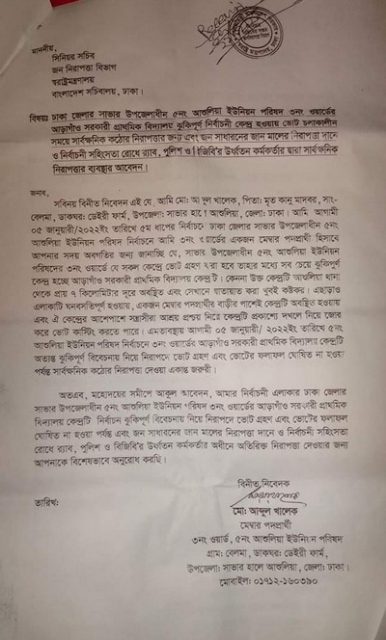 মাননীয়,
সিনিয়র সচিব
জন নিরাপত্তা বিভাগ
স্বরাষ্ট্রমন্ত্রণালয়
বাংলাদেশ সচিবালয়, ঢাকা।
বিষয়ঃ ঢাকা জেলার সাভার উপজেলাধীন ৫নং আশুলিয়া ইউনিয়ন পরিষদ ৩নং ওয়ার্ডের
আড়াগাঁও সরকারী প্রাথমিক বিদ্যালয় ঝুকিপূর্ণ নির্বাচনী কেন্দ্র হওয়ায় ভোট চলাকালীন
সময়ে সার্বক্ষনিক কঠোর নিরাপত্তার জন্য এবং জন সাধারনের জান মালের নিরাপত্তা দানে
ও নির্বাচনী সহিংসতা রোধে র‍্যাব, পুলিশ ও বিজিবি'র উর্ধ্বতন কর্মকর্তার দ্বারা সার্বক্ষনিক
নিরাপত্তার ব্যবস্থার আবেদন।
জনাব,
সবিনয় বিনীত নিবেদন এই যে, আমি মো: আব্দুল খালেক, পিতা: মৃত কানু মাদবর, সাং-
বেলমা, ডাকঘর: ডেইরী ফার্ম, উপজেলা: সাভার হালে আশুলিয়া, জেলা: ঢাকা। আমি আগামী
০৫ জানুয়ারী/২০২২ইং তারিখে ৫ম ধাপের নির্বাচনে ঢাকা জেলার সাভার উপজেলাধীন ৫নং
আশুলিয়া ইউনিয়ন পরিষদ নির্বাচনে আমি ৩নং ওয়ার্ডের একজন মেম্বার পদপ্রার্থী হিসাবে
আপনার সদয় অবগতির জন্য জানাচ্ছি যে, সাভার উপজেলাধীন ৫নং আশুলিয়া ইউনিয়ন
পরিষদের ৩নং ওয়ার্ডে যে সকল কেন্দ্রে ভোট গ্রহণ করা হবে তাহার মধ্যে সব চেয়ে ঝুকিপূর্ণ
কেন্দ্র হচ্ছে আড়াগাঁও সরকারী প্রাথমিক বিদ্যালয় কেন্দ্র টি। কেননা উক্ত কেন্দ্রটি আশুলিয়া থানা
থেকে প্রায় ৭ কিলোমিটার দূরে অবস্থিত এবং সেখানে যাতায়াত করা খুবই কষ্টকর। এছাড়াও
এলাকাটি ঘনবসতিপূর্ণ হওয়ায়, একজন মেম্বার পদপ্রার্থীর বাড়ীর পাশেই কেন্দ্রটি অবস্থিত হওয়ায়
এবং ঐ কেন্দ্রের আশেপাশে সন্ত্রাসীরা আশ্রয় প্রশ্রয় নিয়ে কেন্দ্রটি প্রকাশ্যে দখলে নিয়ে জোর
করে ভোট কাস্টিং করতে পারে। এমতাবস্থায় আগামী ০৫ জানুয়ারী/ ২০২২ইং তারিখে ৫নং
আশুলিয়া ইউনিয়ন পরিষদ নির্বাচনে ৩নং ওয়ার্ডের আড়াগাঁও সরকারী প্রাথমিক বিদ্যালয় কেন্দ্রটি
অত্যন্ত ঝুকিপূর্ণ বিবেচনায় নিয়ে নিরাপদে ভোট গ্রহণ এবং ভোটের ফলাফল ঘোষিত না হওয়া
পর্যন্ত সার্বক্ষনিক কঠোর নিরাপত্তা দেওয়া একান্ত জরুরী।
অতএব, মহোদয়ের সমীপে আকুল আবেদন, আমার নির্বাচনী এলাকার ঢাকা জেলার
সাভার উপজেলাধীন ৫নং আশুলিয়া ইউনিয়ন পরিষদ ৩নং ওয়ার্ডের আড়াগাঁও সরকারী প্রাথমিক
বিদ্যালয় কেন্দ্রটি নির্বাচন ঝুকিপূর্ণ বিবেচনায় নিয়ে নিরাপদে ভোট গ্রহণ এবং ভোটের ফলাফল
ঘোষিত না হওয়া পর্যন্ত এবং জন সাধারনের জান মালের নিরাপত্তা দানে ও নির্বাচনী সহিংসতা
রোধে র‍্যাব, পুলিশ ও বিজিবি'র উর্ধ্বতন কর্মকর্তার অধীনে অতিরিক্ত নিরাপত্তা দেওয়ার জন্য
আপনাকে বিশেষভাবে অনুরোধ করছি।
বিনীত নিবেদক
তারিখ:
মো: আব্দুল খালেক
মেম্বার পদপ্রার্থী
৩নং ওয়ার্ড, ৫নং আশুলিয়া ইউনিয়ন পরিষদ
গ্রাম: বেলমা, ডাকঘর: ডেইরী ফার্ম,
উপজেলা: সাভার হালে আশুলিয়া, জেলা: ঢাকা।
মোবাইল: ০১৭১২-১৬০৩৯০